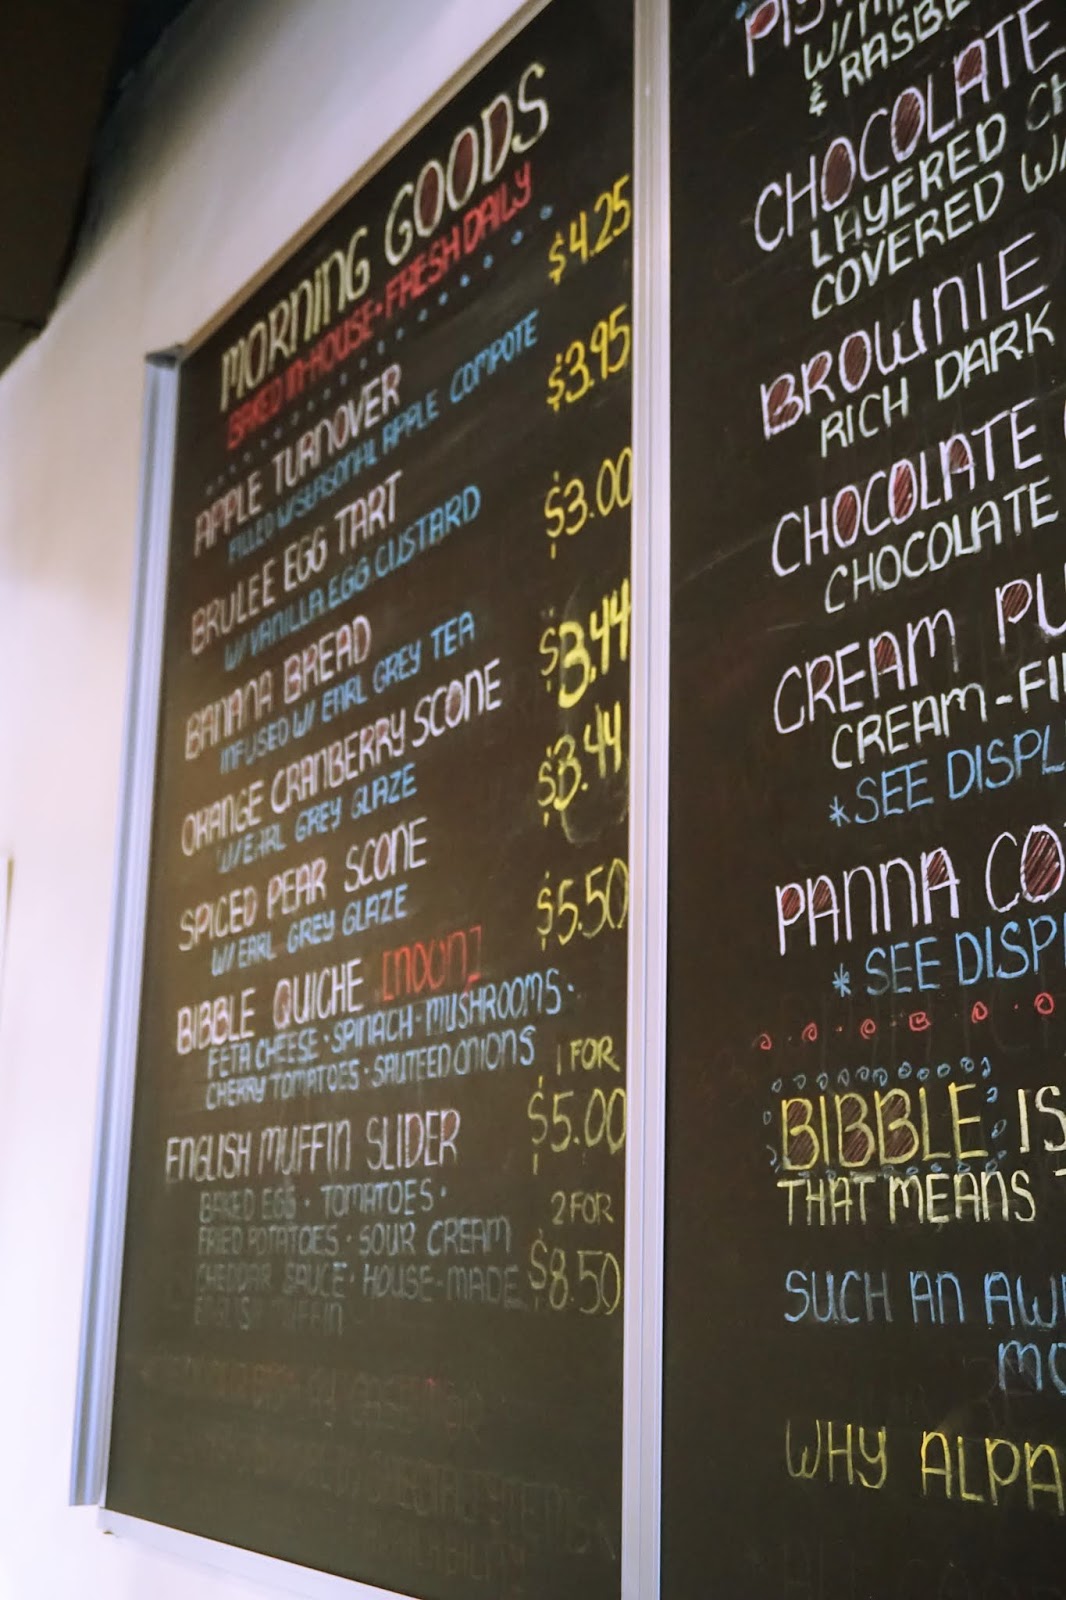 MORNING GOODS
BAKED IN-HOUSE · FRESH DAILY
APPLE TURNOVER $4.25
FILLED W/ SEASONAL APPLE COMPOTE
BRULEE EGG TART $3.95
W/ VANILLA EGG CUSTARD
BANANA BREAD $3.00
INFUSED W/ EARL GREY TEA
ORANGE CRANBERRY SCONE $3.44
W/ EARL GREY GLAZE
SPICED PEAR SCONE $3.44
W/ EARL GREY GLAZE
BIBBLE QUICHE [NOON] $5.50
FETA CHEESE · SPINACH · MUSHROOMS ·
CHERRY TOMATOES · SAUTEED ONIONS
1 FOR
ENGLISH MUFFIN SLIDER $5.00
BAKED EGG · TOMATOES ·
2 FOR
FRIED POTATOES · SOUR CREAM
$8.50
CHEDDAR SAUCE · HOUSE-MADE
ENGLISH MUFFIN
W/
& RASBE
CHOCOLATE
LAYERED CH
COVERED W/
BROWNIE
RICH DARK
CHOCOLATE
CHOCOLATE
CREAM PU
CREAM-FI
*SEE DISPL
PANNA CO
* SEE DISP
BIBBLE IS
THAT MEANS
SUCH AN AW
MO
WHY ALPA